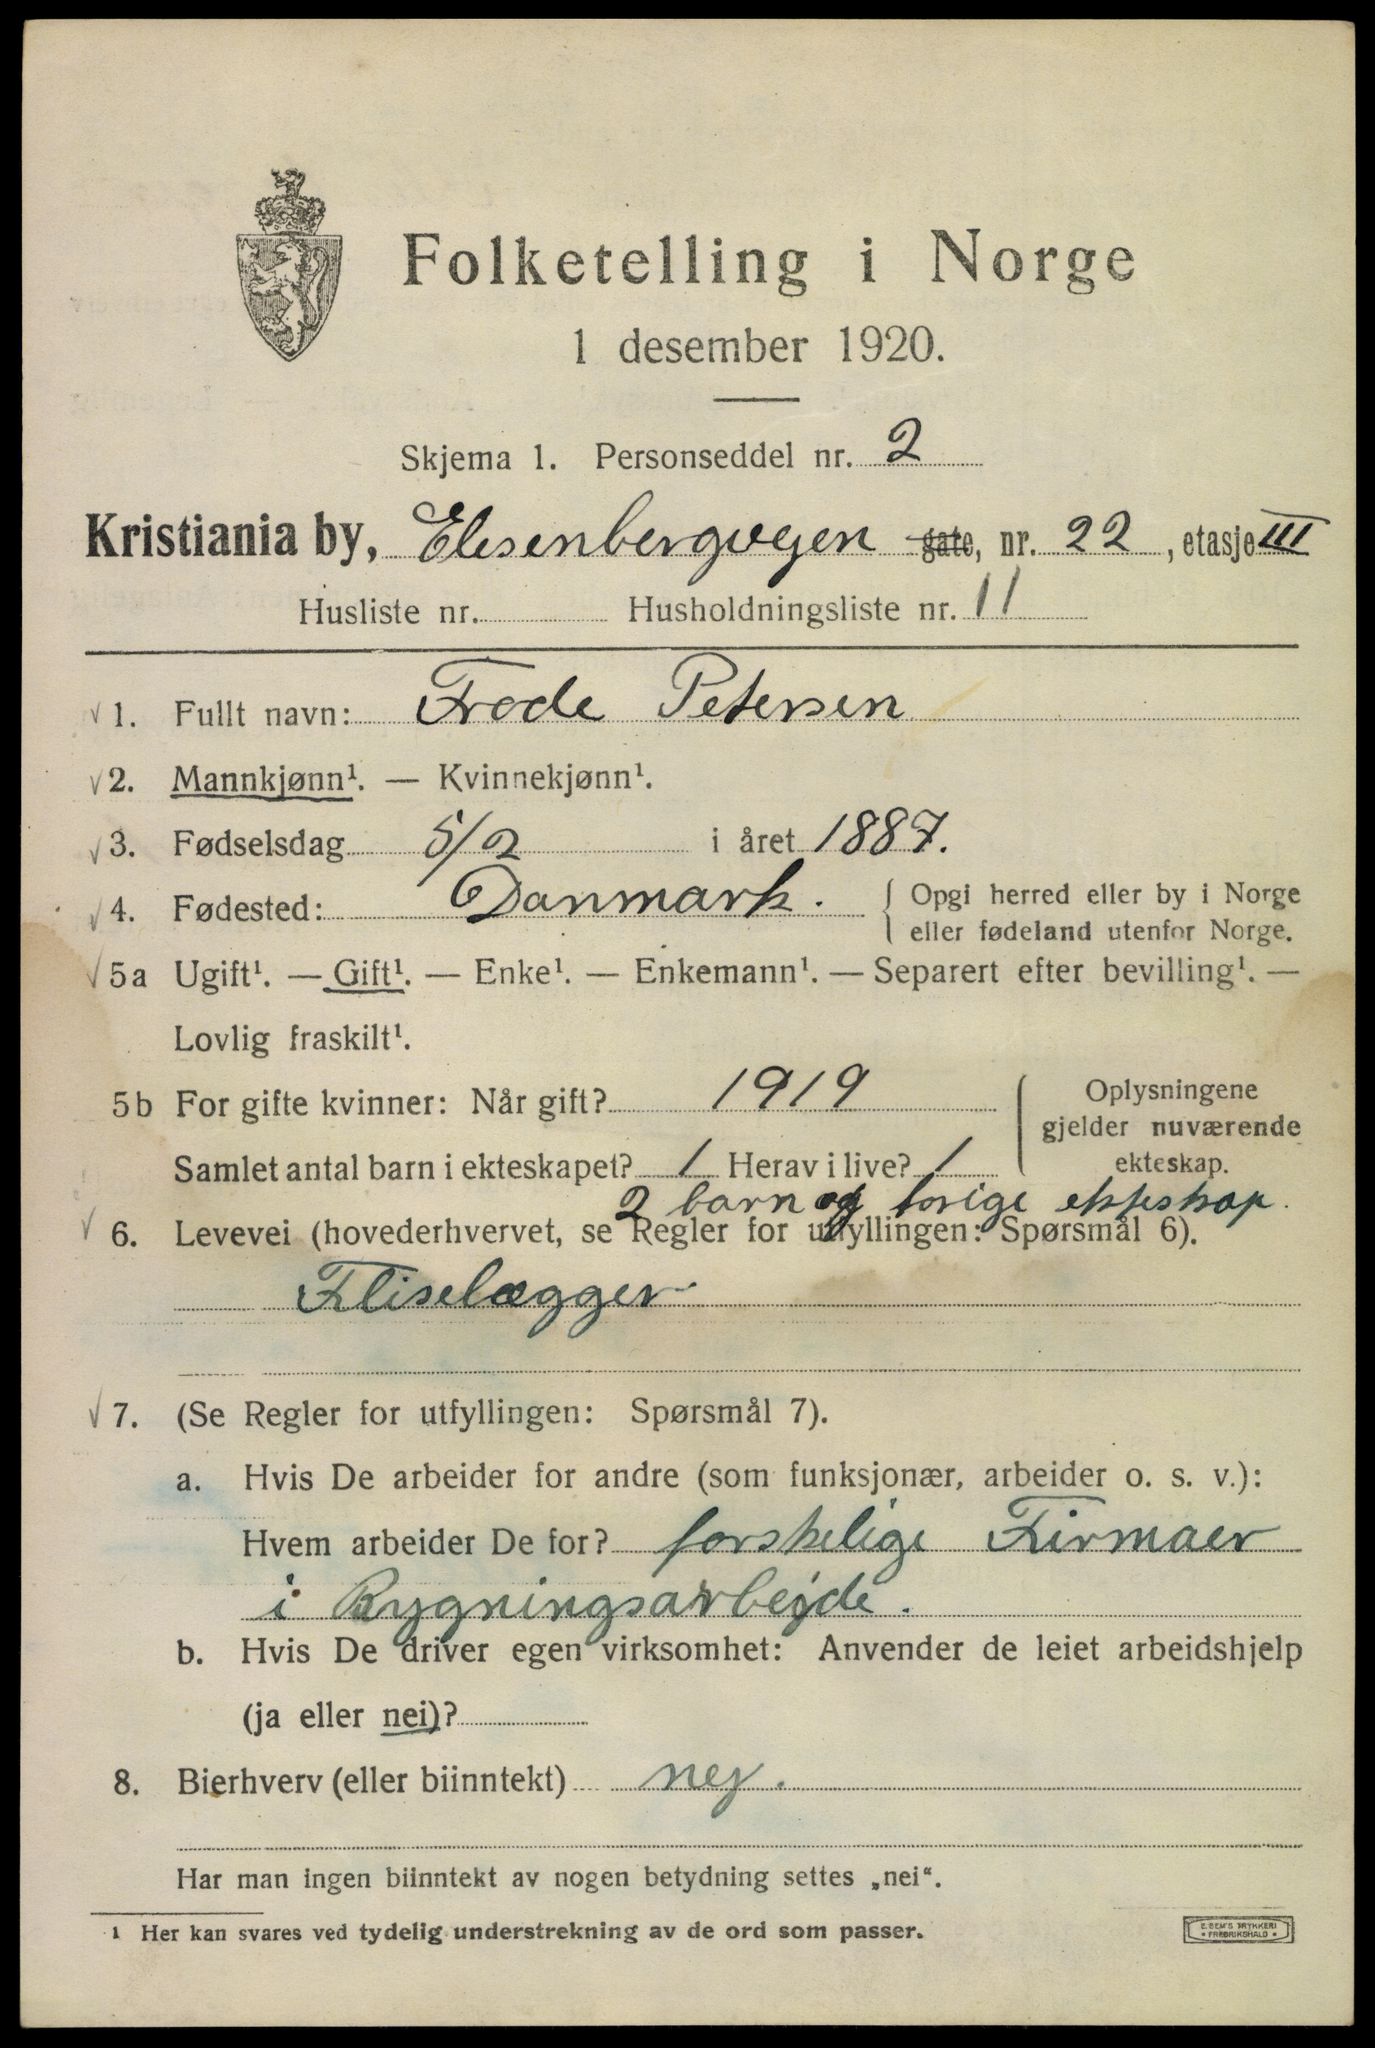 Folketelling i Norge
1 desember 1920.
Skjema 1. Personseddel nr. 2
Kristiania by, Elesenbergvejen gate, nr. 22, etasje III
Husliste nr. Husholdningsliste nr. 11
1. Fullt navn: Frode Petersen
2. Mannkjønn¹. — Kvinnekjønn¹.
3. Fødselsdag 5/2 i året 1887.
4. Fødested: Danmark. { Opgi herred eller by i Norge
eller fødeland utenfor Norge.
5a Ugift¹. — Gift¹. — Enke¹. — Enkemann¹. — Separert efter bevilling¹. —
Lovlig fraskilt¹.
5b For gifte kvinner: Når gift? 1919 { Oplysningene
gjelder nuværende
ekteskap.
Samlet antal barn i ekteskapet? 1 Herav i live? 1
2 barn af forige ekteskap.
6. Levevei (hovederhvervet, se Regler for utfyllingen: Spørsmål 6).
Fliselægger
7. (Se Regler for utfyllingen: Spørsmål 7).
a. Hvis De arbeider for andre (som funksjonær, arbeider o. s. v.):
Hvem arbeider De for? forskelige Firmaer
i Bygningsarbejde.
b. Hvis De driver egen virksomhet: Anvender de leiet arbeidshjelp
(ja eller nei)?
8. Bierhverv (eller biinntekt) nej.
Har man ingen biinntekt av nogen betydning settes „nei“.
1 Her kan svares ved tydelig understrekning av de ord som passer.
E. SEM'S TRYKKERI
• FREDRIKSHALD •